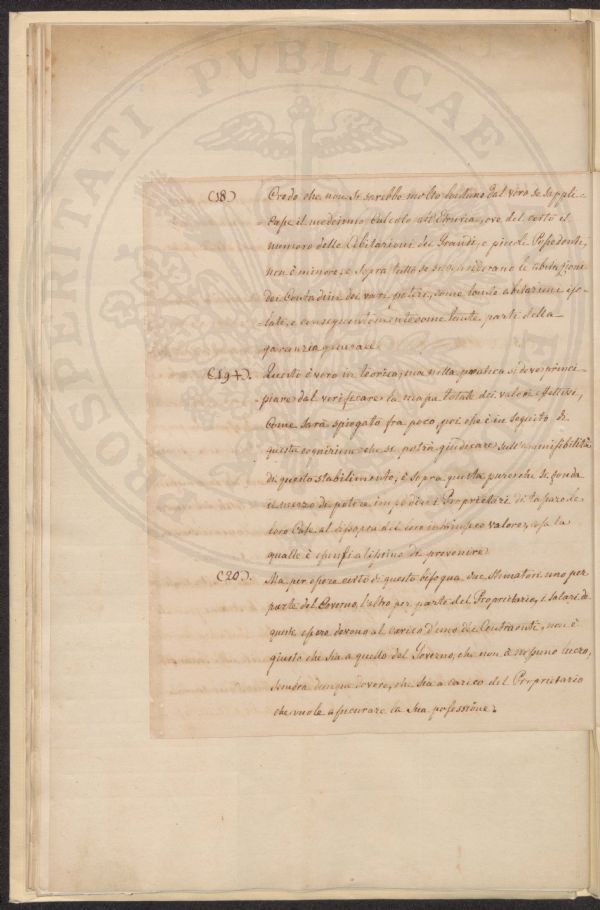 PROSPERITATI PVBLICAE
(18) Credo che non si sarebbe molto lontano dal vero se si appli=
=casse il medesimo calcolo all'Etruria, ove del certo il
numero delle Abitazioni dei Grandi, e piccoli Possedenti,
non è minore, e sopra tutto se si considerano le abitazioni
dei Contadini dei vari poderi, come tante abitazioni iso=
=late, e conseguentemente come tante parti della
garanzia generale.
(19+). Questo è vero in teorica, ma nella pratica si deve princi=
=piare dal verificare la massa totale dei valori effettivi,
come sarà spiegato fra poco, poi che è in seguito di
questa cognizione che si potrà giudicare sull'ammissibilità
di questo stabilimento, è sopra questa pure che si fonda
il mezzo di potere impedire i Proprietari di tassare le
loro Case al disopra del loro intrinseco valore, cosa la
qualle è essenzialissimo di prevenire
(20). Ma per essere certi di questo bisogna due Stimatori uno per
parte del Governo, l'altro per parte del Proprietario, i salari di
queste essere devono al carico d'uno dei Contraenti, non è
giusto che sia a quello del Governo, che non à nessuno lucro,
sembra dunque dovere, che sia a carico del Proprietario
che vuole assicurare la sua possessione.